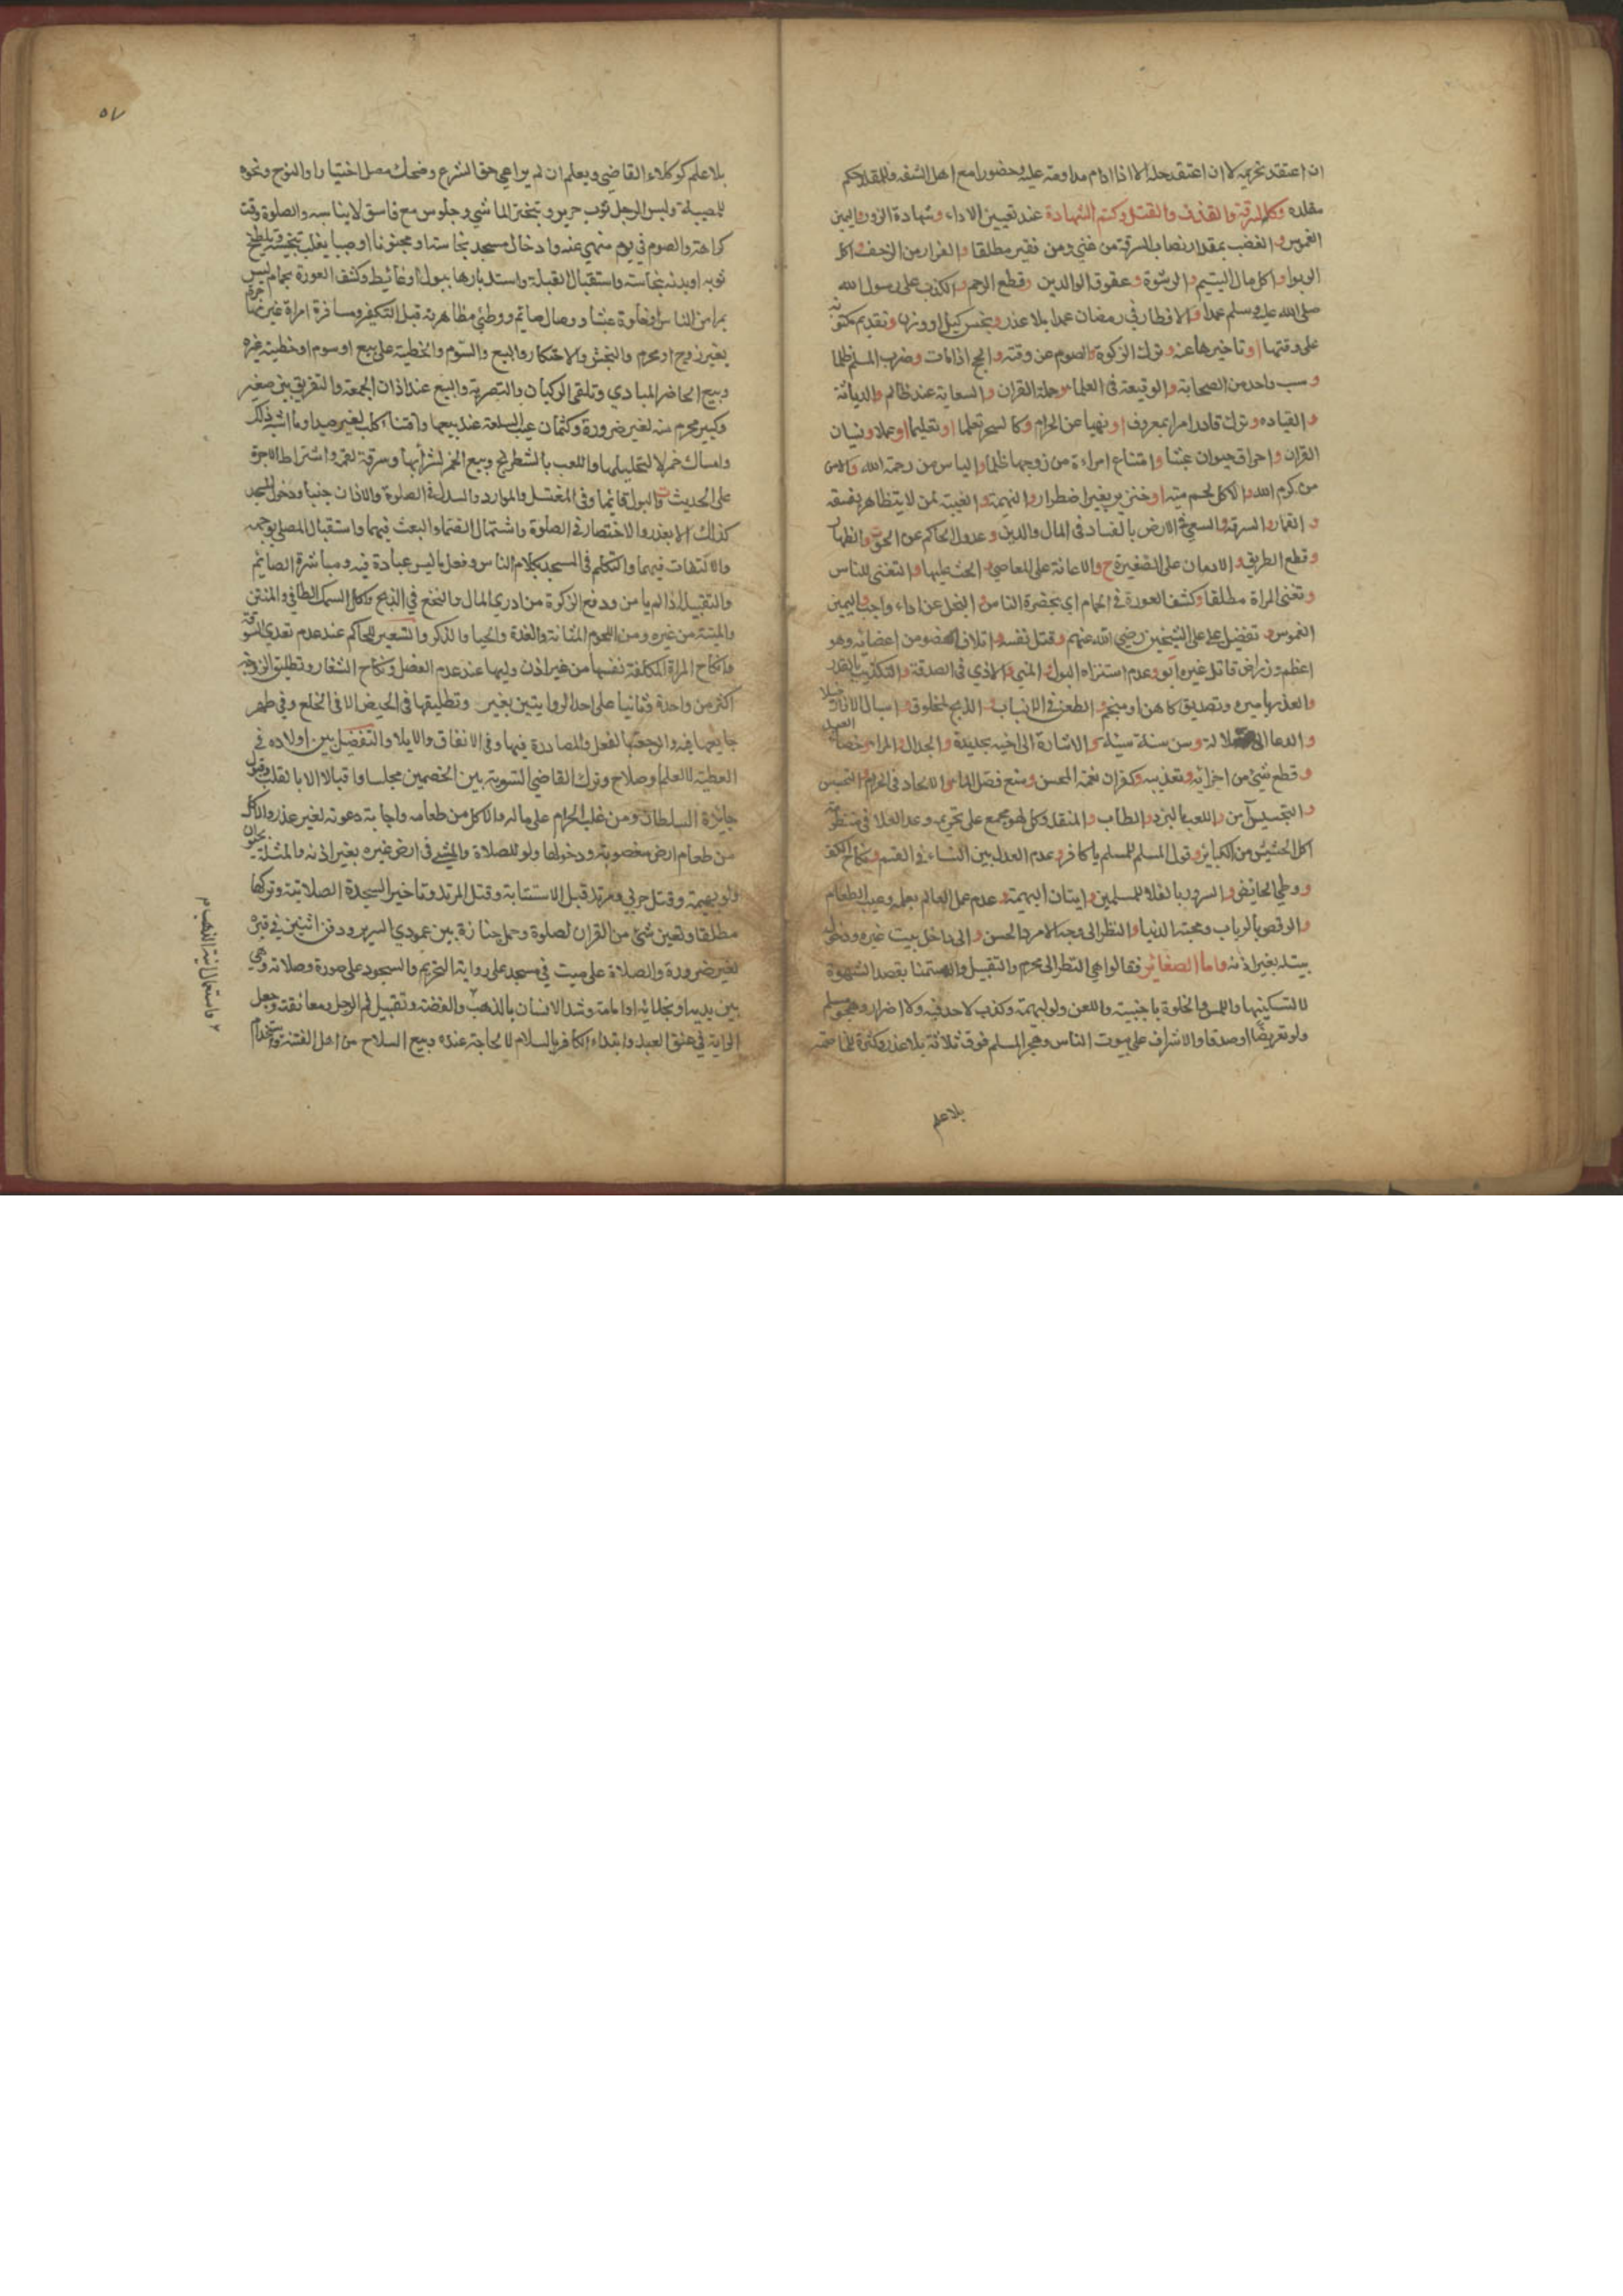 ان اعتقد تحريمه لا ان اعتقد حله الا اذا ادام مداومته عليه وحضور مع اهل السفه فالمقلد حكم
مقلده وكالسرقة والقذف والقتل وكتم الشهادة عند تعيين الاداء وشهادة الزور واليمين
الغموس والغضب بمقدار نصاب السرقة من غني ومن فقير مطلقا والفرار من الزحف واكل
الربوا واكل مال اليتيم والرشوة وعقوق الوالدين وقطع الرحم والكذب على رسول الله
صلى الله عليه وسلم عمدا والافطار في رمضان عمدا بلا عذر وبخس كيل او وزن وتقديم مكتوبة
على وقتها او تاخيرها عنه وترك الزكوة والصوم عن وقته والحج اذا مات وضرب المسلم ظلما
وسب واحد من الصحابة والوقيعة في العلماء وحملة القران والسعاية عند ظالم والدياثة
والقياده وترك قادر امرا بمعروف او نهيا عن الحرام وكالسحر تعلما او تعليما او عملا ونسيان
القران واحراق حيوان عبثا وامتناع امراءة من زوجها ظلما والياس من رحمة الله والامن
من كرم الله والاكل لحم ميته او خنزير بغير اضطرار والنميمة والغيبة لمن لا يتظاهر بفسقه
والقمار والسرقة والسعي في الارض بالفساد في المال والدين وعدول الحاكم عن الحق والظهار
وقطع الطريق والادمان على الصغيرة والاعانة على المعاصي والحث عليها والتغني للناس
وتغني المراة مطلقا وكشف العورة في الحمام اي بحضرة الناس والبخل عن اداء واجب واليمين
الغموس وتفضيل علي على الشيخين رضي الله عنهم وقتل نفسه واتلاف عضو من اعضائه وهو
اعظم وزرا من قاتل غيره وعدم استنزاه البول والمني والاذي في الصدقة والتكذيب بالقدر
والغدر باميره وتصديق كاهن او منجم والطعن في الانساب والذبح لمخلوق واسبال الازار خيلا
والدعا الى ضلالة وسن سنة سيئة والاشارة الى اخيه بحديدة والجدال والمراء وخصاء العبيد
وقطع شئ من اجزائه وتعذيبه وكفران نعمة المحسن ومنع فضل الماء والالحاد في الحرم والتجسس
واللعب بالنرد والطاب والمنقلة وكل لهو مجمع على تحريمه وعد العلا في منظومته
اكل الحشيش من الكبائر وقول المسلم للمسلم يا كافر وعدم العدل بين النساء في القسم ونكاح الكف
ووطي الحائض والسرور بالغلاء للمسلمين وايتان البهيمة وعدم عمل العالم بعلمه وعيب الطعام
والرقص بالرباب ومحبة الدنيا والنظر الى وجه الامرد الحسن والى داخل بيت غيره ودخول
بيته بغير اذنه واما الصغائر فقالوا هي النظر الى محرم والتقبيل والاستمنا بقصد الشهوة
لا لتسكينها واللمس والخلوة باجنبية واللعن ولو لبهيمة وكذب لا حد فيه ولا اضرار وهجو مسلم
ولو تعريضا او صدقا والاشراف على بيوت الناس وهجر المسلم فوق ثلاثة بلا عذر وكثرة المخاصمة
بلا علم
٥٧
بلا علم كوكلاء القاضي وبعلم ان لم يراعي حق الشرع وضحك مصل اختيارا والنوح ونحوه
للمصيبة ولبس الرجل ثوب حرير وتبختر الماشي وجلوس مع فاسق لايناسه والصلوة وقت
كراهته والصوم في يوم منهي عنه وادخال مسجد نجاسة او مجنونا او صبيا يغلب تنجيسه وتلطيخ
ثوبه او بدنه بنجاسته واستقبال القبلة واستدبارها ببول او غائيط وكشف العورة بحمام ليس
بمرا من الناس او خلوة عبثا ووصال صائم ووطئ مظاهرته قبل التكفير ومسافرة امراة غير
بغير زوج او محرم والنجش والاحتكار والبيع والسوم والخطبة على بيع او سوم او خطبة غيره
وبيع الحاضر للبادي وتلقي الركبان والتصرية والبيع عند اذان الجمعة والتفريق بين صغير
وكبير محرم منه لغير ضرورة وكتمان عيب السلعة عند بيعها واقتناء كلب لغير صيد وما اشبه ذلك
وامساك خمر لا لتخليلها واللعب بالشطرنج وبيع الخمر لشرابها وسرقة لقمة واشتراط الاجرة
على الحديث والبول قائما وفي المغتسل والموارد والسدل في الصلوة والاذان جنبا ودخول المسجد
كذلك الا بعذر والاختصار في الصلوة واشتمال الصماء والبعث فيها واستقبال المصلي بوجهه
والالتفات فيها والتكلم في المسجد بكلام الناس وفعل ما ليس عبادة فيه ومباشرة الصائم
والتقبيل اذا لم يامن ودفع الزكوة من ادري المال والنخع في الذبح واكل السمك الطافي والمنتن
والميتة من غيره ومن اللحوم المثانة والغدة والحيا والذكر والتسعير للحاكم عند عدم تعدي السوقة
وانكاح المراة المكلفة نفسها من غير اذن وليها عند عدم العضل ونكاح الشغار وتطليق الزوجة
اكثر من واحدة وثانيا على احد الروايتين بغير وتطليقها في الحيض الا في الخلع وفي طهر
جامعها فيه والرجعة بالفعل والمصادرة فيها وفي الانفاق والايلاء والتفضيل بين اولاده في
العطية الا لعلم او صلاح وترك القاضي التسوية بين الخصمين مجلسا واقبالا الا بالقلب وقبول
جائزة السلطان ومن غلب الحرام على ماله والاكل من طعامه واجابة دعوته لغير عذر والاكل
من طعام ارض مغصوبة ودخولها ولو للصلاة والمشي في ارض غيره بغير اذنه والمثلة بحيوان
ولو بهيمة وقتل حربي ومرتد قبل الاستتابة وقتل المرتد وتاخير السجدة الصلاتية وتركها
مطلقا وتعين شئ من القران لصلوة وحمل جنازة بين عمودي السرير ودفن اثنين في قبر
لغير ضرورة والصلاة على ميت في مسجد على رواية التحريم والسجود على صورة وصلاته وهي
بين يديه او بحذائه او امامه وشد الانسان بالذهب والفضة وتقبيل فم الرجل ومعانقته وجعل
الراية في عنق العبد وابتداء الكافر بالسلام لا لحاجة عنده وبيع السلاح من اهل الفتنة واستخدام
واستعمال انية الذهب